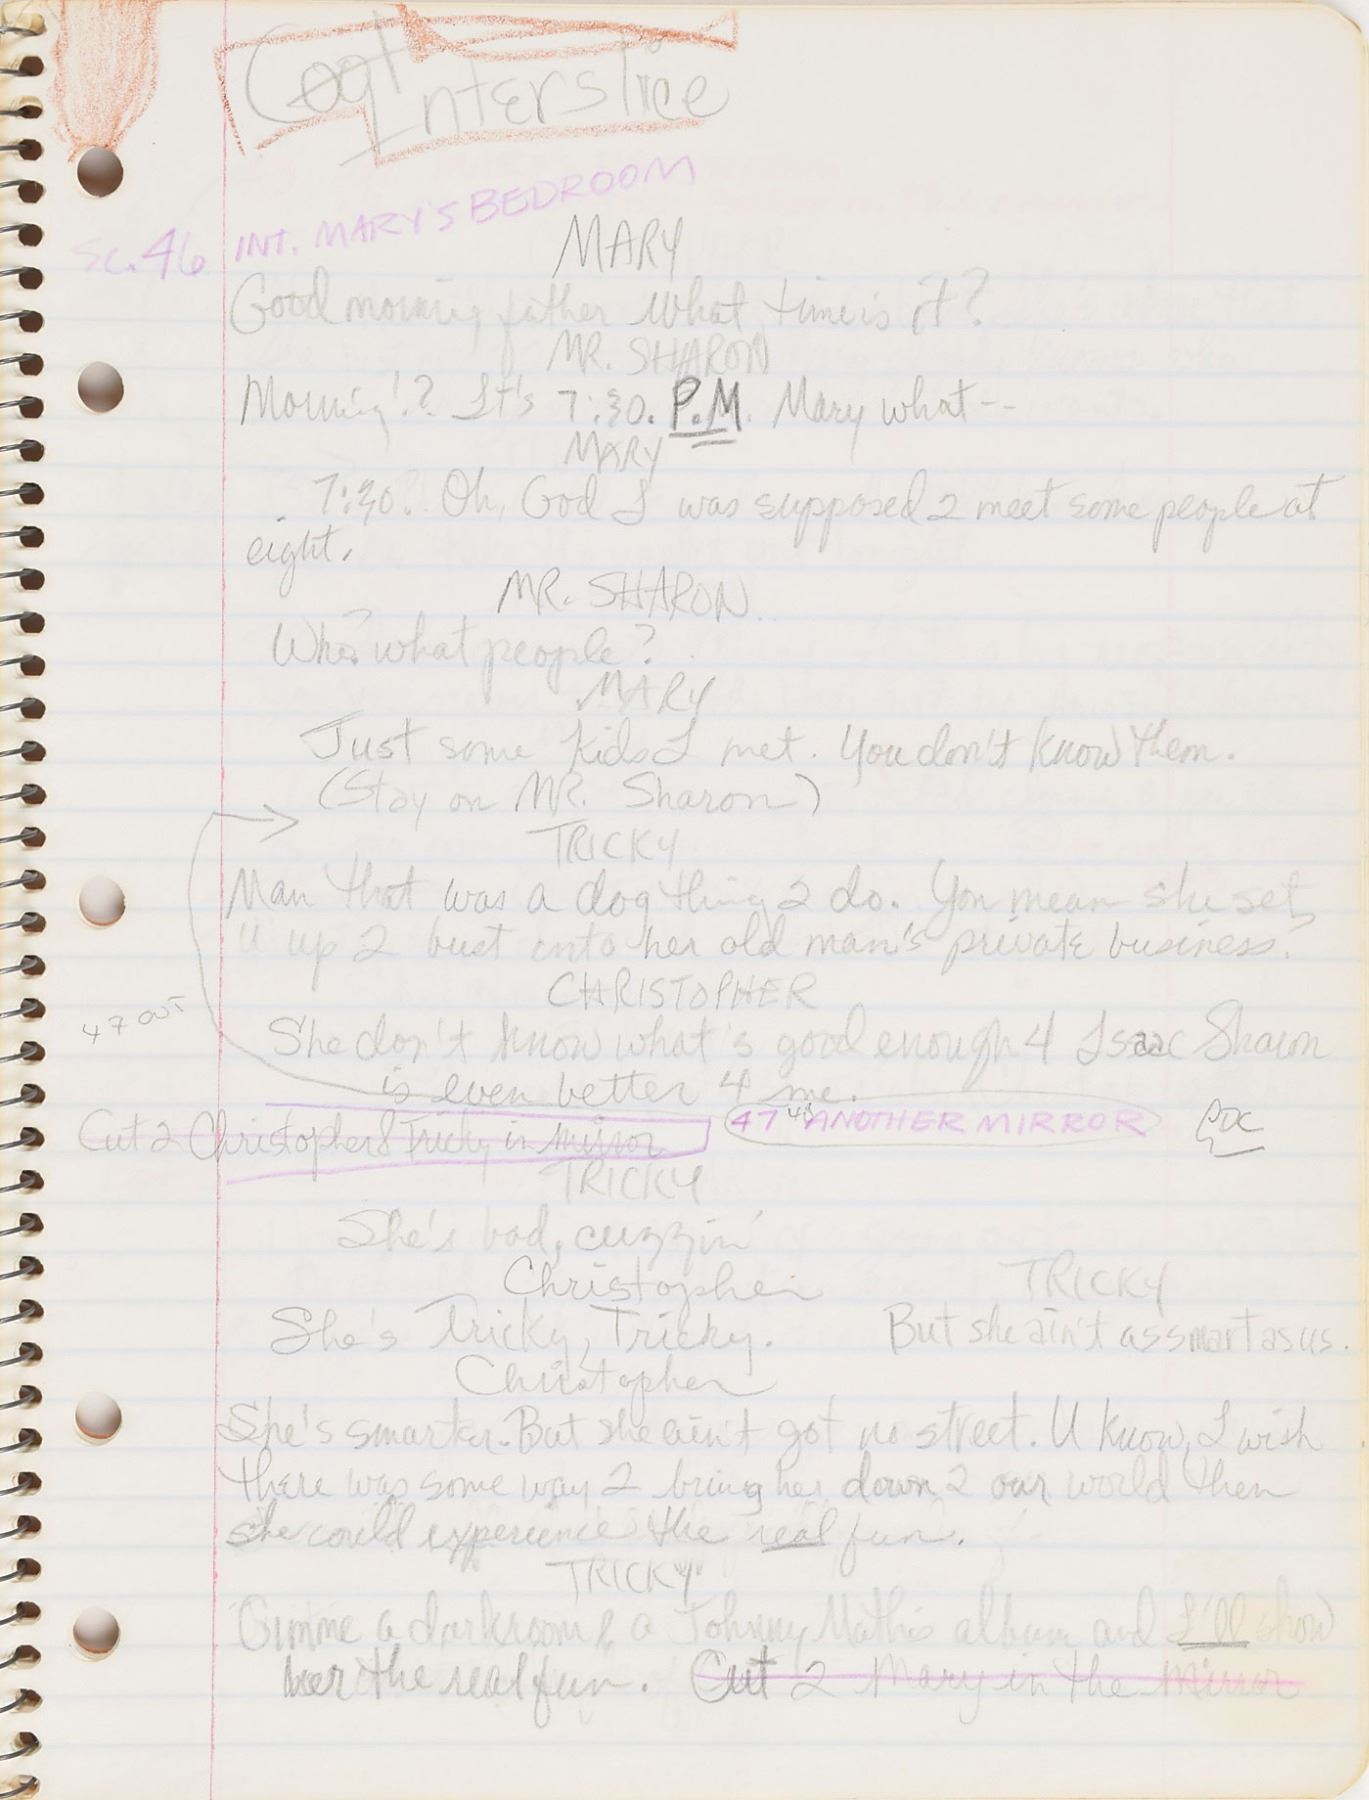 Cont Interslice
Sc. 46 INT. MARY'S BEDROOM
MARY
Good morning father What time is it?
MR. SHARON
Morning!? It's 7:30. P.M. Mary what--
MARY
7:30?! Oh, God I was supposed 2 meet some people at
eight.
MR. SHARON
Who? what people?
MARY
Just some kids I met. You don't know them.
(Stay on MR. Sharon)
TRICKY
Man that was a dog thing 2 do. You mean she set
U up 2 bust into her old man's private business?
CHRISTOPHER
47 OUT
She don't know what's good enough 4 Isaac Sharon
is even better 4 me.
Cut 2 Christopher & Tricky in mirror 47 48 ANOTHER MIRROR
TRICKY
She's bad, cuzzin'
Christopher TRICKY
She's Tricky, Tricky. But she ain't as smart as us.
Christopher
She's smarter. But she ain't got no street. U know, I wish
there was some way 2 bring her down 2 our world then
she could experience the real fun.
TRICKY
Gimme a darkroom & a Johnny Mathis album and I'll show
her the real fun. Cut 2 Mary in the mirror